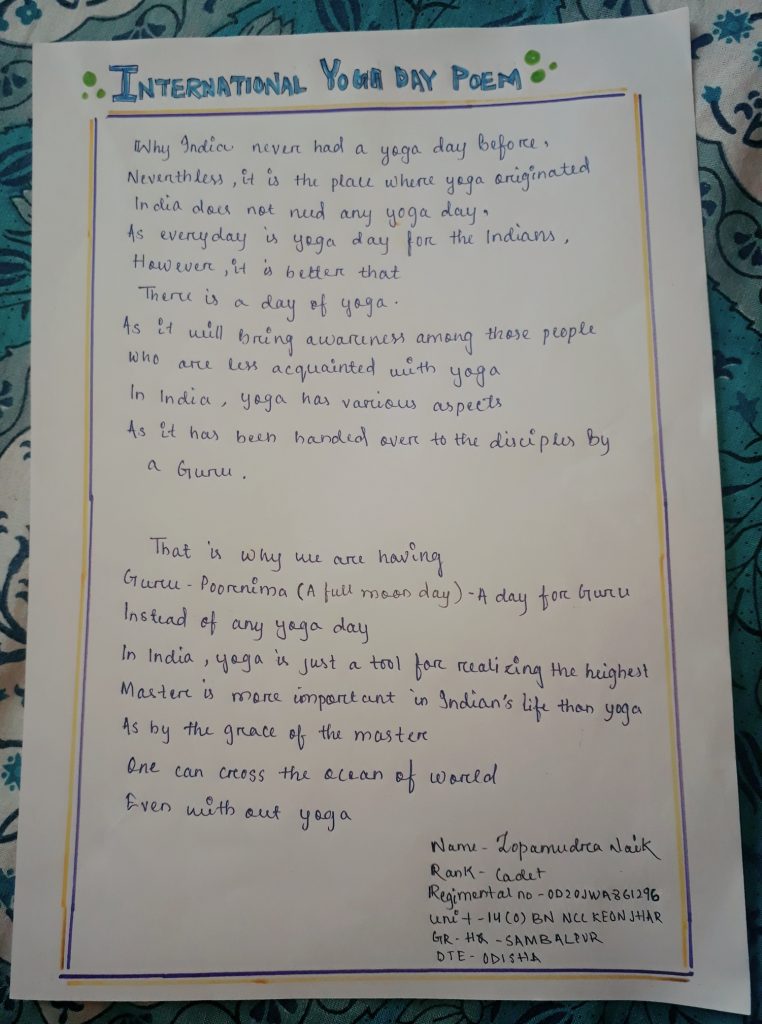 INTERNATIONAL YOGA DAY POEM
Why India never had a yoga day before,
Neverthless, it is the place where yoga originated
India does not need any yoga day,
As everyday is yoga day for the Indians,
However, it is better that
There is a day of yoga.
As it will bring awareness among those people
who are less acquainted with yoga
In India, yoga has various aspects
As it has been handed over to the disciples by
a Guru.
That is why we are having
Guru-Poornima (A full moon day)-A day for Guru
Instead of any yoga day
In India, yoga is just a tool for realizing the heighest
Master is more important in Indian's life than yoga
As by the grace of the master
One can cross the ocean of world
Even with out yoga
Name- Lopamudra Naik
Rank- Cadet
Regimental no-OD20JWA861296
Unit-14(O) BN NCC KEONJHAR
GR-HQ-SAMBALPUR
DTE-ODISHA